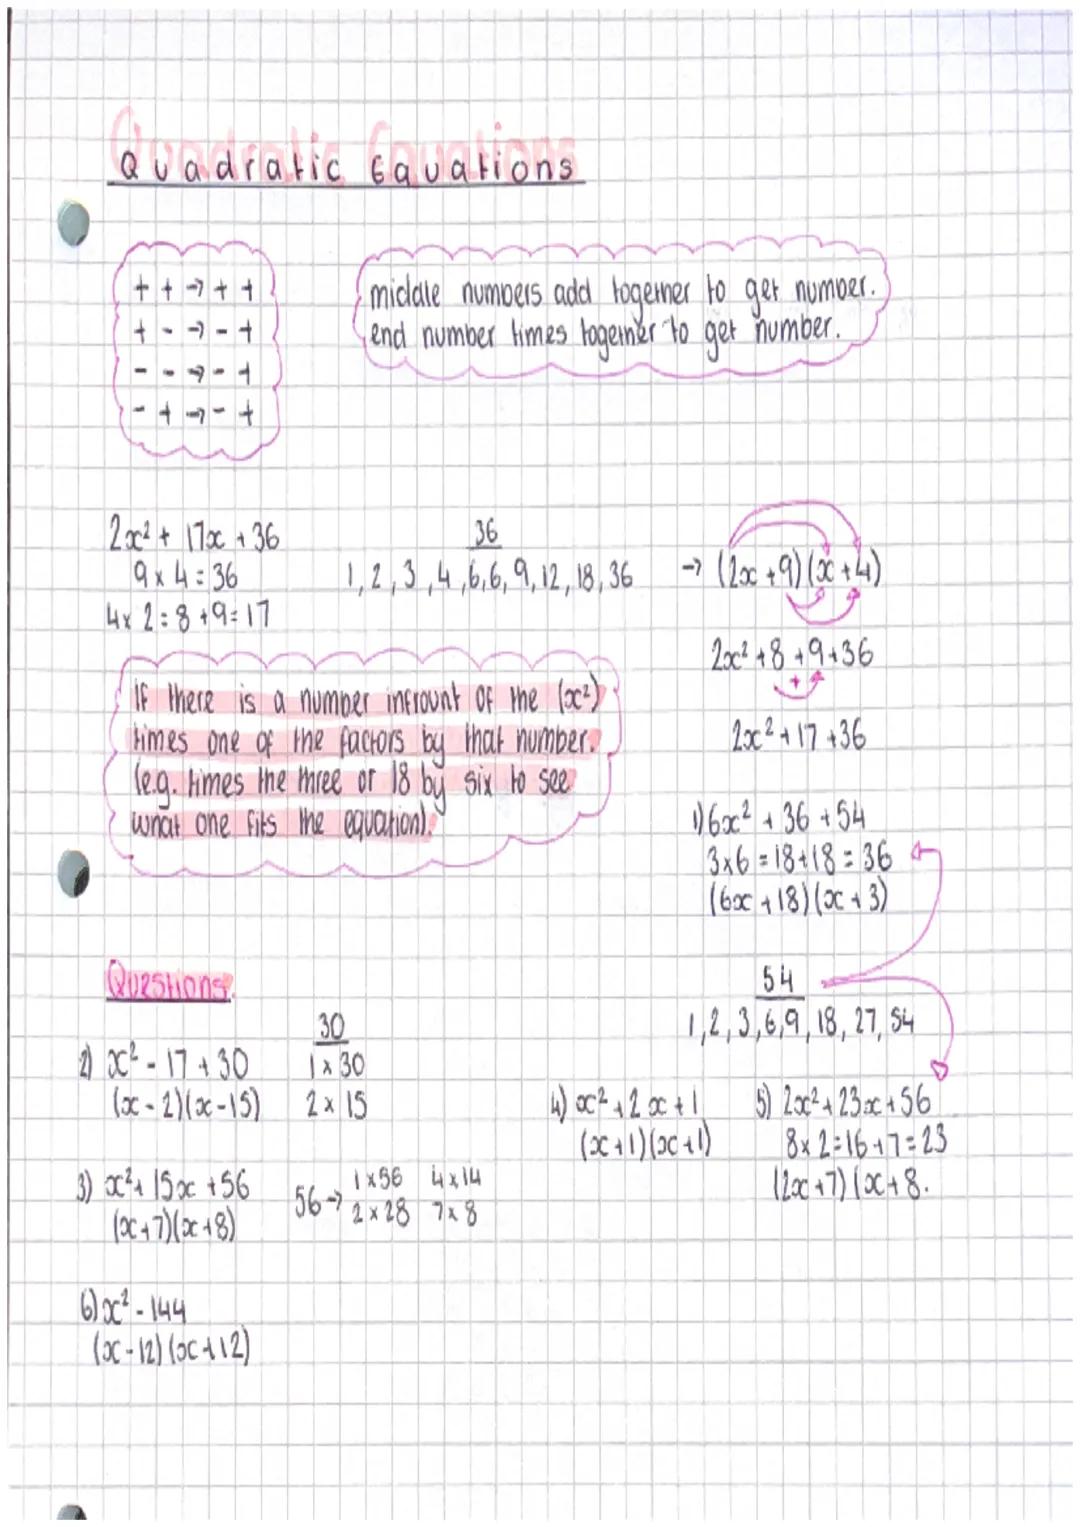 Quadratic Equations
Quadratic Equations
+ + → + +
+ - → - +
- - → - +
- + → - +
middle numbers add together to get number.
end number times together to get number.
2x² + 17x + 36
9 x 4 = 36
4x 2 = 8 + 9 = 17
36
1, 2, 3, 4, 6, 6, 9, 12, 18, 36
→ (2x + 9)(x + 4)
2x² + 8 + 9 + 36
+
2x² + 17 + 36
If there is a number infrount of the (x²)
times one of the factors by that number.
(e.g. times the three or 18 by six to see
what one fits the equation).
1) 6x² + 36 + 54
3x6 = 18 + 18 = 36
(6x + 18)(x + 3)
54
1, 2, 3, 6, 9, 18, 27, 54
Questions.
2) x² - 17 + 30
(x - 2)(x - 15)
30
1 x 30
2 x 15
3) x² + 15x + 56
(x + 7)(x + 8)
56 → 1 x 56 4 x 14
2 x 28 7 x 8
4) x² + 2x + 1
(x + 1)(x + 1)
5) 2x² + 23x + 56
8 x 2 = 16 + 7 = 23
(2x + 7)(x + 8.
6) x² - 144
(x - 12)(x + 12)